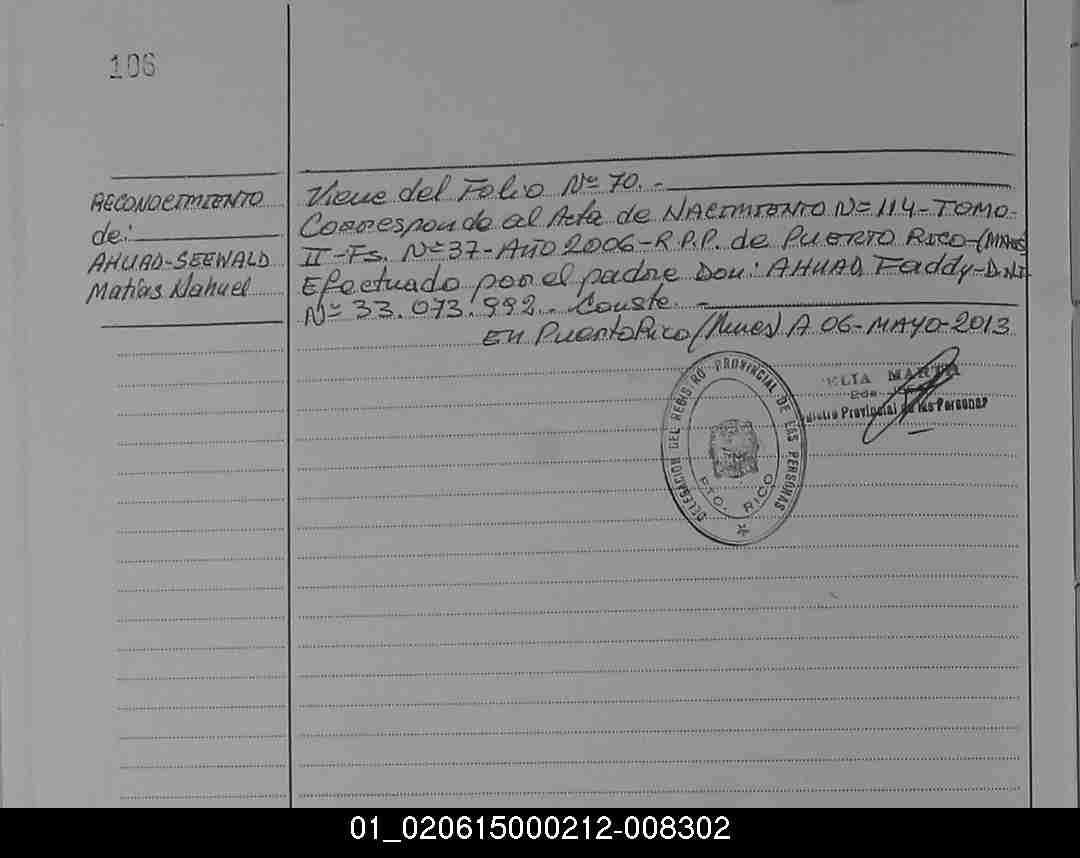 106
RECONOCIMIENTO
de:
AHUAD-SEEWALD
Matías Nahuel
Viene del Folio Nº 70.-
Corresponde al Acta de NACIMIENTO Nº 114-TOMO-
II-Fs. Nº 37-AÑO 2006-R.P.P. de PUERTO RICO-(Mnes)
Efectuado por el padre Don: AHUAD, Faddy-D.N.I
Nº 33.073.992.- Conste.-
En Puerto Rico (Mnes) A 06-MAYO-2013
DELEGACION DEL REGISTRO PROVINCIAL DE LAS PERSONAS
PTO. RICO
ELIA MARTA
Provincial de las Personas
01_020615000212-008302